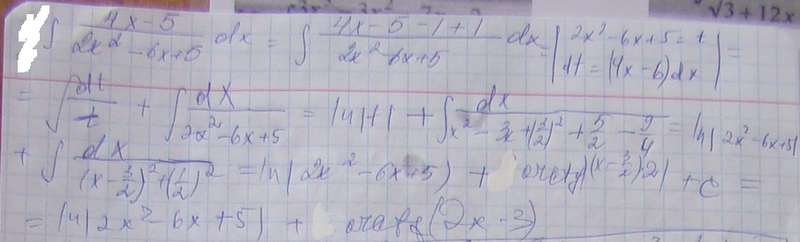 √3 + 12x
∫ (4x-5)/(2x²-6x+5) dx = ∫ (4x-5-1+1)/(2x²-6x+5) dx = |2x²-6x+5=t| dt=(4x-6)dx| =
= ∫ dt/t + ∫ dx/(2x²-6x+5) = ln|t| + ∫ dx/(x²-3x+(3/2)²+5/2-9/4) = ln|2x²-6x+5|
+ ∫ dx/((x-3/2)²+(1/2)²) = ln|2x²-6x+5) + arctg|(x-3/2)2| + c =
= ln|2x²-6x+5| + arctg(2x-3)